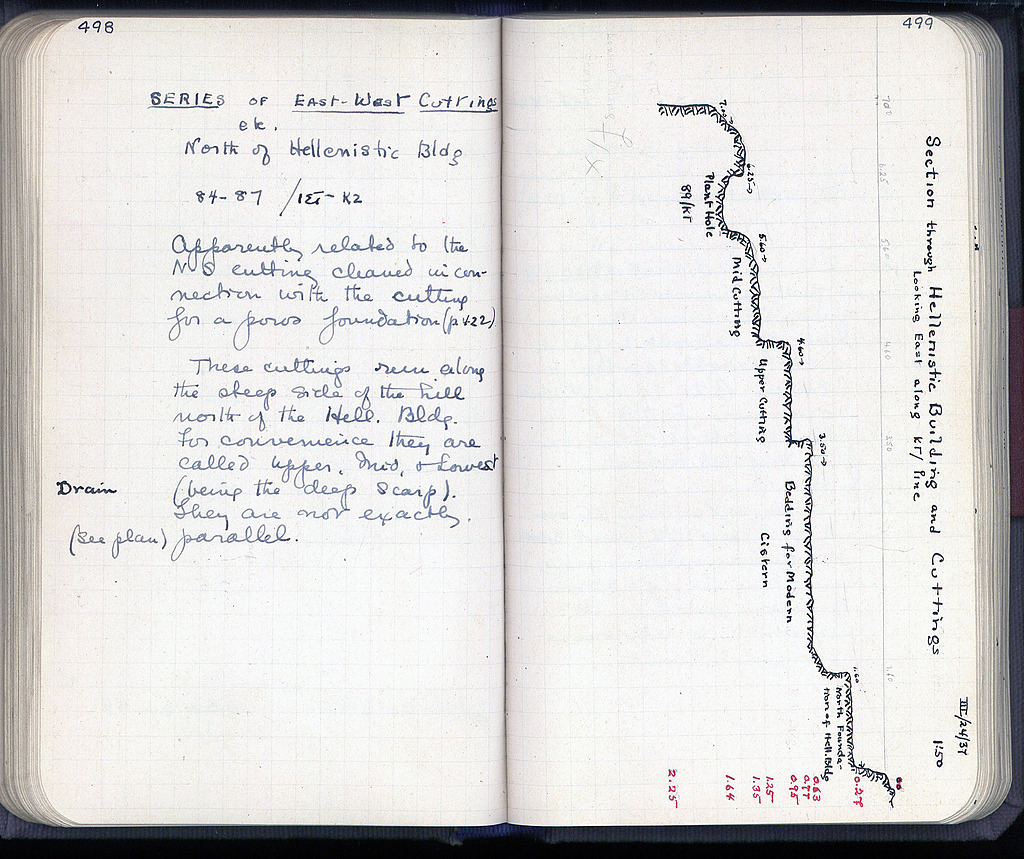 498
SERIES OF EAST-West Cuttings
etc.
North of Hellenistic Bldg
84-87
Apparently related to the
N-S cutting cleaned in con-
nection with the cutting
for a poros foundation (p 422)
These cuttings run along
the steep side of the hill
north of the Hell. Bldg.
For convenience they are
called upper, mid, & Lowest
Drain
(being the deep scarp).
They are not exactly
(see plan) parallel.
499
Section through Hellenistic Building and Cuttings
1:50
Looking East along ΚΓ/line
III/24/37
7.00
6.25
5.60
4.60
3.50
1.60
7.00→
6.25→
Plant Hole
89/ΚΓ
5.60→
Mid Cutting
4.60→
Upper Cutting
3.50→
Bedding for Modern
Cistern
1.60
North Founda-
tion of Hell. Bldg
00
0.63
0.77
0.95
1.25
1.35
1.64
2.25